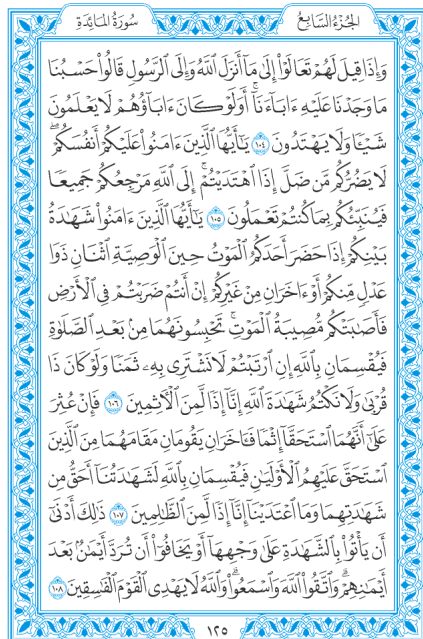 الجُزْءُ السَّابِعُ
سُورَةُ المَائِدَةِ
وَإِذَا قِيلَ لَهُمْ تَعَالَوْا۟ إِلَىٰ مَآ أَنزَلَ ٱللَّهُ وَإِلَى ٱلرَّسُولِ قَالُوا۟ حَسْبُنَا
مَا وَجَدْنَا عَلَيْهِ ءَابَآءَنَآۚ أَوَلَوْ كَانَ ءَابَآؤُهُمْ لَا يَعْلَمُونَ
شَيْـًٔا وَلَا يَهْتَدُونَ ١٠٤ يَـٰٓأَيُّهَا ٱلَّذِينَ ءَامَنُوا۟ عَلَيْكُمْ أَنفُسَكُمْۖ
لَا يَضُرُّكُم مَّن ضَلَّ إِذَا ٱهْتَدَيْتُمْۚ إِلَى ٱللَّهِ مَرْجِعُكُمْ جَمِيعًا
فَيُنَبِّئُكُم بِمَا كُنتُمْ تَعْمَلُونَ ١٠٥ يَـٰٓأَيُّهَا ٱلَّذِينَ ءَامَنُوا۟ شَهَـٰدَةُ
بَيْنِكُمْ إِذَا حَضَرَ أَحَدَكُمُ ٱلْمَوْتُ حِينَ ٱلْوَصِيَّةِ ٱثْنَانِ ذَوَا
عَدْلٍ مِّنكُمْ أَوْ ءَاخَرَانِ مِنْ غَيْرِكُمْ إِنْ أَنتُمْ ضَرَبْتُمْ فِى ٱلْأَرْضِ
فَأَصَـٰبَتْكُم مُّصِيبَةُ ٱلْمَوْتِۚ تَحْبِسُونَهُمَا مِنۢ بَعْدِ ٱلصَّلَوٰةِ
فَيُقْسِمَانِ بِٱللَّهِ إِنِ ٱرْتَبْتُمْ لَا نَشْتَرِى بِهِۦ ثَمَنًا وَلَوْ كَانَ ذَا
قُرْبَىٰ وَلَا نَكْتُمُ شَهَـٰدَةَ ٱللَّهِ إِنَّآ إِذًا لَّمِنَ ٱلْـَٔاثِمِينَ ١٠٦ فَإِنْ عُثِرَ
عَلَىٰٓ أَنَّهُمَا ٱسْتَحَقَّآ إِثْمًا فَـَٔاخَرَانِ يَقُومَانِ مَقَامَهُمَا مِنَ ٱلَّذِينَ
ٱسْتَحَقَّ عَلَيْهِمُ ٱلْأَوْلَيَـٰنِ فَيُقْسِمَانِ بِٱللَّهِ لَشَهَـٰدَتُنَآ أَحَقُّ مِن
شَهَـٰدَتِهِمَا وَمَا ٱعْتَدَيْنَآ إِنَّآ إِذًا لَّمِنَ ٱلظَّـٰلِمِينَ ١٠٧ ذَٰلِكَ أَدْنَىٰٓ
أَن يَأْتُوا۟ بِٱلشَّهَـٰدَةِ عَلَىٰ وَجْهِهَآ أَوْ يَخَافُوٓا۟ أَن تُرَدَّ أَيْمَـٰنٌۢ بَعْدَ
أَيْمَـٰنِهِمْۗ وَٱتَّقُوا۟ ٱللَّهَ وَٱسْمَعُوا۟ۗ وَٱللَّهُ لَا يَهْدِى ٱلْقَوْمَ ٱلْفَـٰسِقِينَ ١٠٨
١٢٥